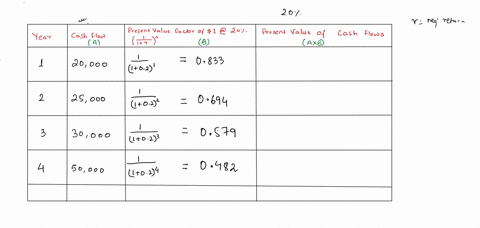 20%
r = req' return
Year
Cash flow
(A)
Present Value Factor of $1 @ 20%
(1/1+r)ⁿ
(B)
Present Value of Cash Flows
(A×B)
1
20,000
1/(1+0.2)¹ = 0.833
2
25,000
1/(1+0.2)² = 0.694
3
30,000
1/(1+0.2)³ = 0.579
4
50,000
1/(1+0.2)⁴ = 0.482